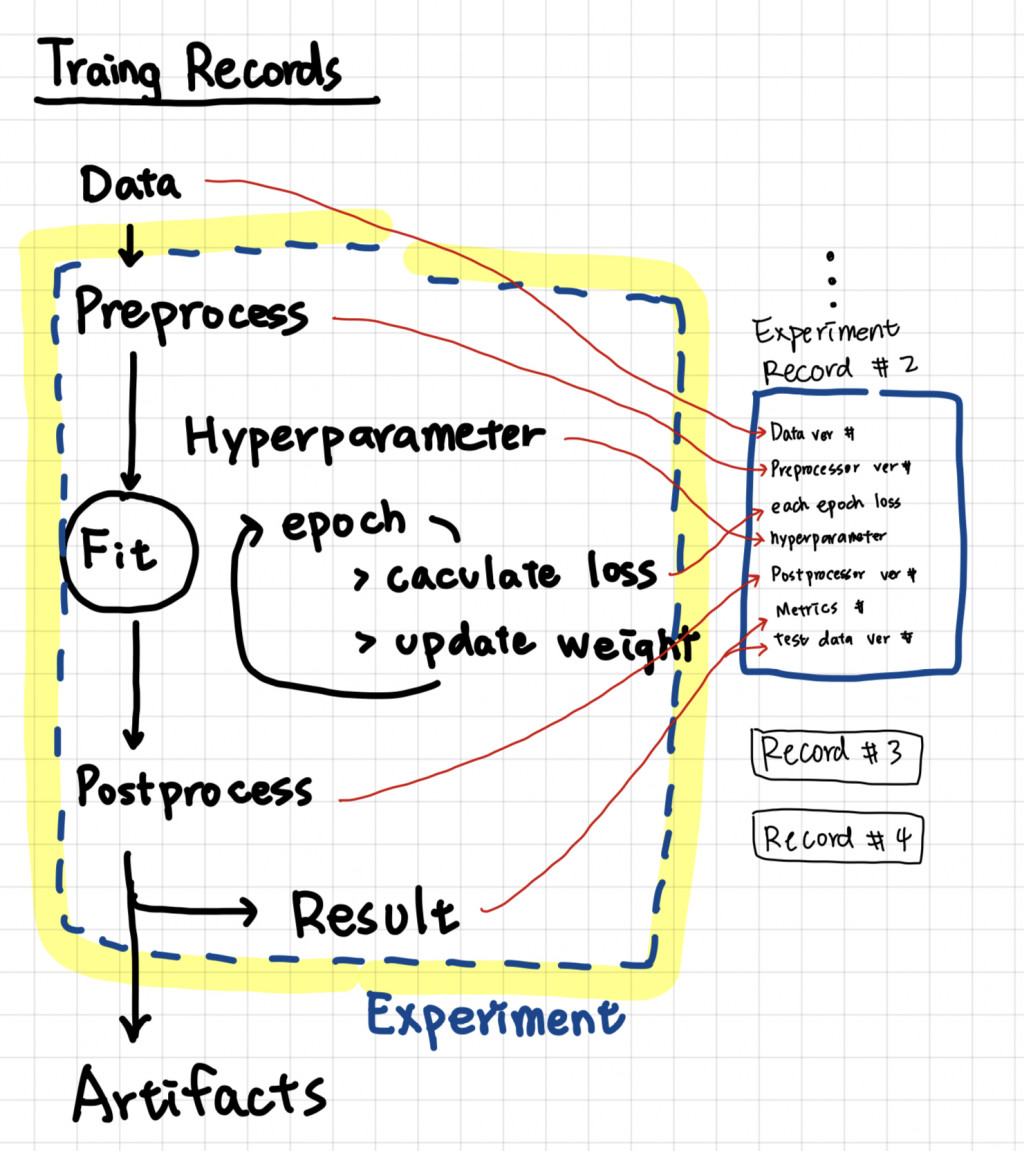 Traing Records
Data
Preprocess
Hyperparameter
Fit
epoch
> caculate loss
> update weight
Postprocess
Result
Experiment
Artifacts
Experiment
Record # 2
Data ver #
Preprocessor ver #
each epoch loss
hyperparameter
Postprocessor ver #
Metrics #
test data ver #
Record # 3
Record # 4